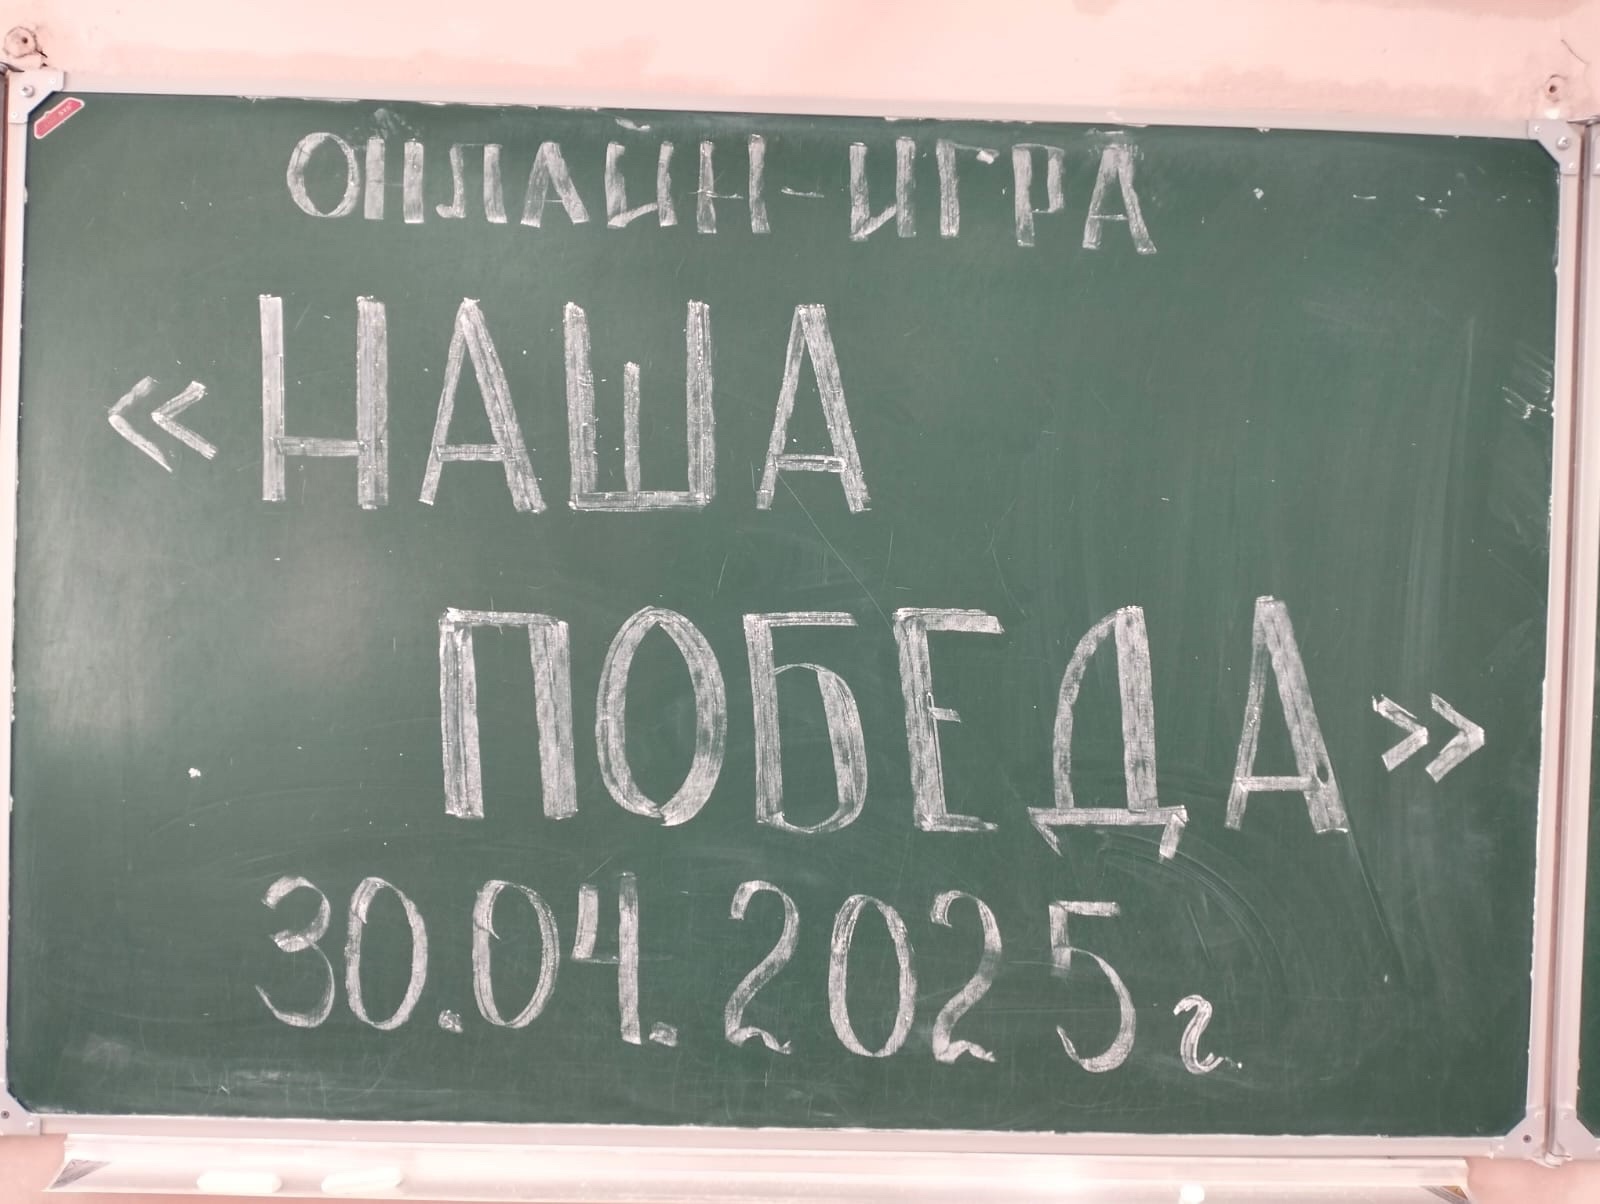 ОНЛАЙН-ИГРА
«НАША
ПОБЕДА»
30.04.2025г.